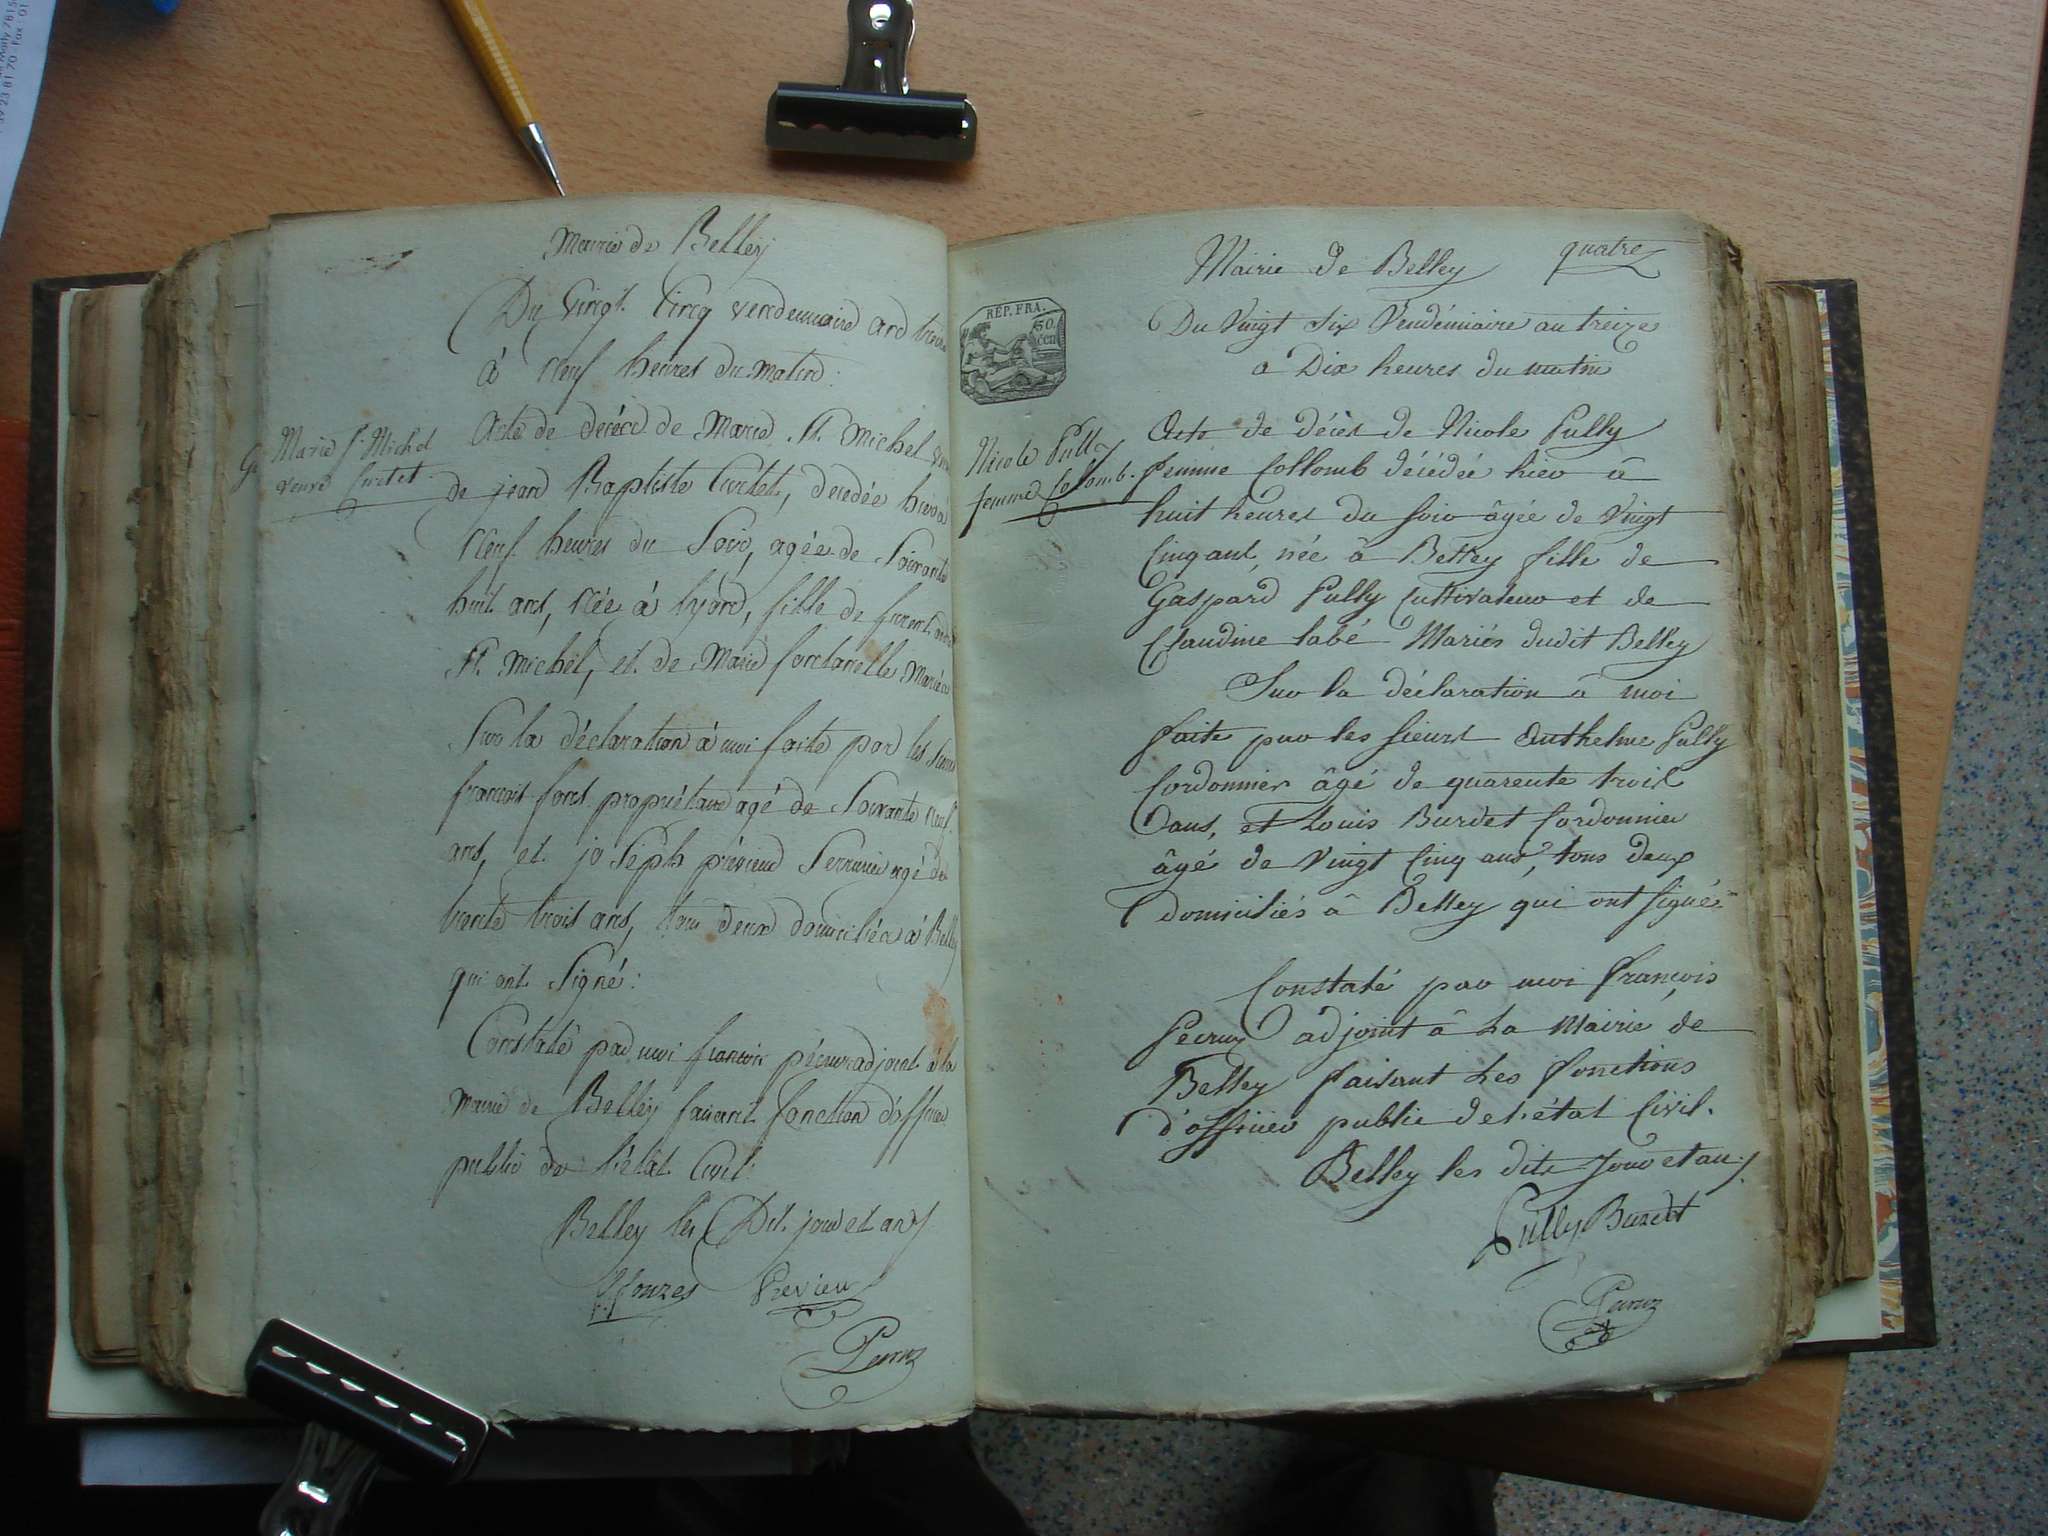 Mairie de Belley
Du vingt Cinq vendemiaire an treize
à Neuf heures du matin:
Marie St Michel
veuve Curtet
Acte de décéd de Marie St. Michel
de jean Baptiste Curtet, decedée hier à
Neuf heures du Soir, agée de Soixante
huit ans, Née à Lyon, fille de
St. Michel, et de Marie fontanelle Mariés
Sur la déclaration à moi faite par les Sieurs
françois propriétaire agé de Soixante Neuf
ans, et joseph prévieux Serrurier agé de
trente trois ans, tous deux domiciliés à Belley
qui ont Signé:
Constaté par moi françois adjoint à la
Mairie de Belley faisant fonction d'officier
public de l'état Civil.
Belley les Dit jour et an
Previeu
Mairie de Belley quatre
REP. FRA.
50
cen
Du Vingt Six Vendémiaire an treize
a Dix heures du matin
Nicole Pully
femme Collomb.
Acte de décès de Nicole Pully
femme Collomb décédée hier à
huit heures du soir âgée de Vingt
Cinq ans, née à Belley fille de
Gaspard Pully Cultivateur et de
Claudine Labé Mariés dudit Belley
Sur la déclaration à moi
faite par les sieurs Anthelme Pully
Cordonnier âgé de quarente trois
ans, et Louis Burdet Cordonnier
âgé de Vingt Cinq ans, tous deux
domiciliés à Belley qui ont signé
Constaté par moi françois
adjoint à La Mairie de
Belley faisant Les fonctions
d'officier public de l'état Civil.
Belley les dits Jour et an
Pully Burdet